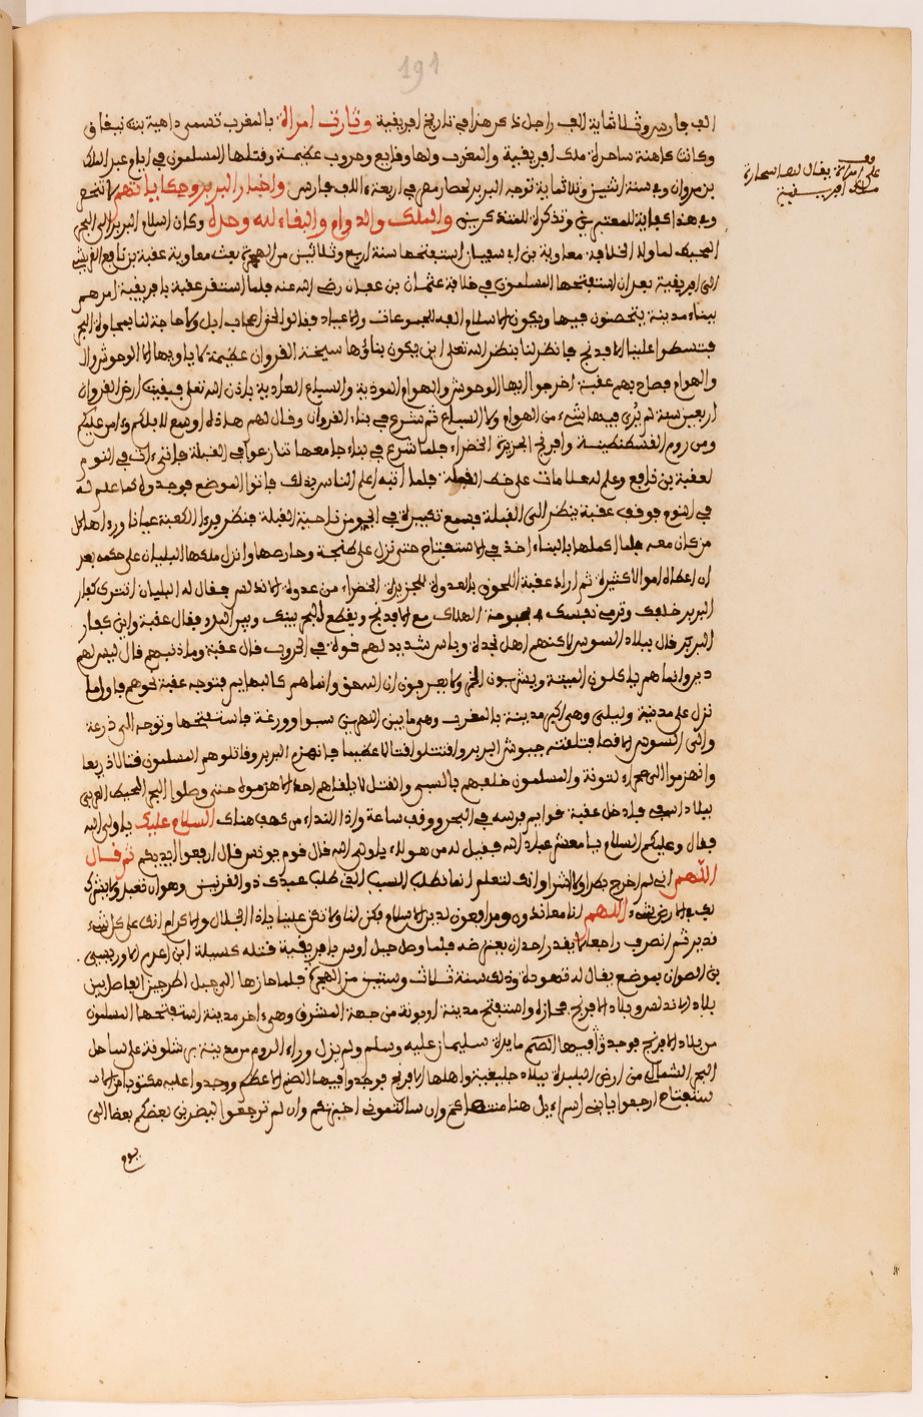 191
الف فارس وثلاثماية الف راجل ذكر هذا في تاريخ افريقية وثارت امراة بالمغرب تسمى داهية بنت نيفاق
وكانت كاهنة ساحرة ملك افريقية والمغرب ولها وقايع وحروب عظيمة وقتلها المسلمون في ايام عبد الملك
بن مروان وفي سنة اثنين وثلاثماية توجه البربر لحصار مصر في اربعة الف فارس واخبار البربر وحكاياتهم لا تنحصر
وفي هذا كفاية للمعتبرين وتذكرة للمتذكرين والملك والدوام والبقاء لله وحده وكان اسلام البربر الى البحر
المحيط لما ولي الخلافة معاوية بن ابي سفيان استفتحها سنة اربع وثلاثين من الهجرة بعث معاوية عقبة بن نافع القرشي
الى افريقية بعد ان استفتحها المسلمون في خلافة عثمان بن عفان رضي الله عنه فلما استقر عقبة بافريقية امرهم
ببناء مدينة يتحصنون فيها ويكون الاسلام الجموعات والاعياد فقالوا نحن اصحاب ابل ولا حاجة لنا بمجاورة البحر
فتسطوا علينا الافرنج فانظر لنا ينظر الله تعلى اين يكون بناؤها سبخة القروان عظيمة لا ياويها الا الوحوش
والهوام فصاح بهم عقبة اخرجوا ايها الوحوش والهوام الموذية والسباع العادية باذن الله تعلى فبقيت ارض القروان
اربعين سنة لم يرى فيها شيء من الهوام ولا السباع ثم شرع في بناء القروان وقال لهم هاذه اوسع لابلكم وءامن عليكم
ومن روم القسطنطينة وافرنج الجزيرة الخضراء فلما شرع في بناء جامعها تنازعوا في القبلة فاتي ءات في النوم
لعقبة بن نافع وعلم له علامات على خط القبلة فلما انتبه اعلم الناس بذلك فاتوا الموضع فوجدوه كما علم له
في النوم فوقف عقبة ينظر الى القبلة فسمع تكبيرة في الجو من ناحية القبلة فنظر فرءا الكعبة عيانا ورءاها كل
من كان معه فلما اكملها بالبناء اخذ في الاستفتاح حتى نزل على طنجة وحاصرها وانزل ملكها اليليان على حكمه بعد
ان اعطاه اموالا كثيرة ثم اراد عقبة اللحوق بالعدوة للجزيرة الخضراء من عدوة الاندلس فقال له اليليان اتترك كفار
البربر خلفك وترمي نفسك في بحبوحة الهلاك مع الافرنج ويقطع البحر بينك وبين المدد فقال عقبة واين كفار
البربر قال ببلاد السوس لاكنهم اهل نجدة وباس شديد لهم قوة في الحروب قال عقبة وما دينهم قال ليس لهم
دين وانما هم ياكلون الميتة ويشربون الخمر ولا يعرفون ان الله حق وانما هم كالبهايم فتوجه عقبة نحوهم فاول ما
نزل على مدينة وليلي وهي اكبر مدينة بالمغرب وهي ما بين النهرين سبوا وورغة فاستفتحها وتوجه الى درعة
والى السوس الاقصا فتلقته جيوش البربر واقتتلوا قتالا عظيما فانهزم البربر وقاتلوهم المسلمون قتالا ذريعا
وانهزموا الى صحراء لمتونة والمسلمون خلفهم بالسبي والقتل لا يلقاهم احد الا هزموه حتى وصلوا البحر المحيط الغربي
ببلاد اسفي فدخل عقبة قوايم فرسه في البحر ووقف ساعة واذا النداء من كهف هناك السلام عليك ياولي الله
فقال وعليكم السلام يا معشر عباد الله فقيل له من هولاء ياولي الله قال قوم يونس قال ارفعوا ايديكم ثم قال
اللهم اني لم اخرج بطرا ولا اشرا وانك لتعلم انما نطلب السبب الذي طلب عبدك ذو القرنين وهو ان تعبد ولا يشرك
بك في الارض شيء اللهم انا معاندون ومدافعون لدين الاسلام فكن لنا ولا تكن علينا ياذا الجلال والاكرام انك على كل شيء
قدير ثم انصرف راجعا لا يقدر احد ان يعترضه فلما وصل جبل اوراس بافريقية قتله كسيلة ابن اغرم الاوربي
بموضع يقال له تهودة وذلك سنة ثلاث وستين من الهجرة فلما حازها الى جبل الحاجز الفاصل بين
بلاد الاندلس وبلاد الافرنج فجازه واستفتح مدينة اربونة من جهة المشرق وهي ءاخر مدينة استفتحها المسلمون
من بلاد الافرنج فوجدوا فيها الصنم مايدة سليمان عليه وسلم ولم يزل وراء الروم من مدينة برشلونة على ساحل
البحر الشمالي من ارض البليدة ببلاد جليقية واهلها الافرنج فوجدوا فيها الصنم الاعظم ووجدوا عليه مكتوبا
ارجعوا يابني اسراءيل هنا منتهاكم وان سالتموني اخبرتكم وان لم ترجعوا ليضربن بعضكم بعضا الى
يوم
على امراة يقال لها سحارة
ملكت افريقية